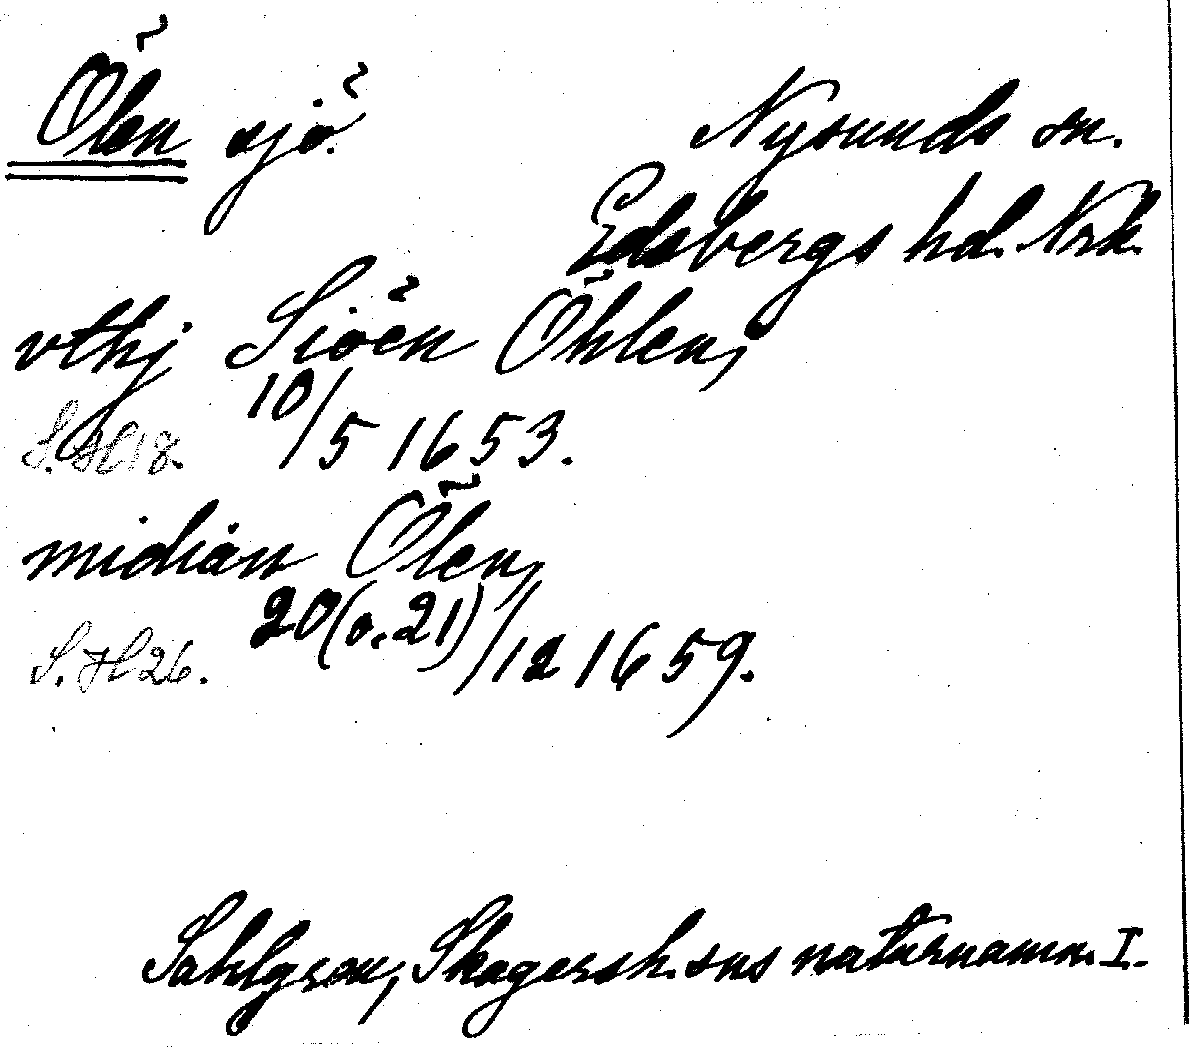 Ölen sjö. Nysunds sn.
Edsbergs hd. Nrk.
vthj Siöen Öhlen,
S. H 18. 10/5 1653.
midián Ölen,
S. H 26. 20(o. 21)/12 1659.
Sahlgren, Skagersh. sns naturnamn. I.